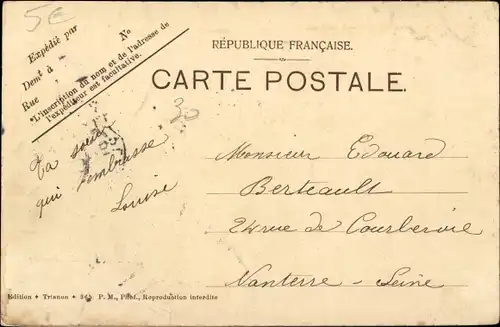 5€
Expédié par
Demt à N°
Rue
"L'inscription du nom et de l'adresse de
l'expéditeur est facultative.
RÉPUBLIQUE FRANÇAISE.
CARTE POSTALE.
30
Ta soeur
qui t'embrasse
Louise
Monsieur Edouard
Berteault
24 rue de Courbevoie
Nanterre - Seine
Edition + Trianon + 345 P. M., Phot., Reproduction interdite